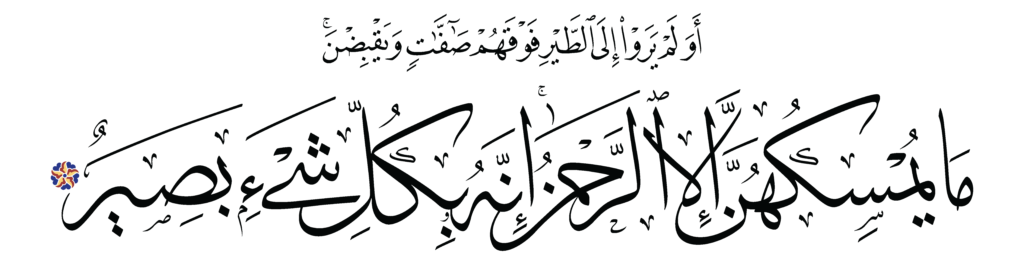 أَوَلَمْ يَرَوْا۟ إِلَى ٱلطَّيْرِ فَوْقَهُمْ صَـٰٓفَّـٰتٍ وَيَقْبِضْنَ ۚ
مَا يُمْسِكُهُنَّ إِلَّا ٱلرَّحْمَـٰنُ ۚ إِنَّهُۥ بِكُلِّ شَىْءٍۭ بَصِيرٌ